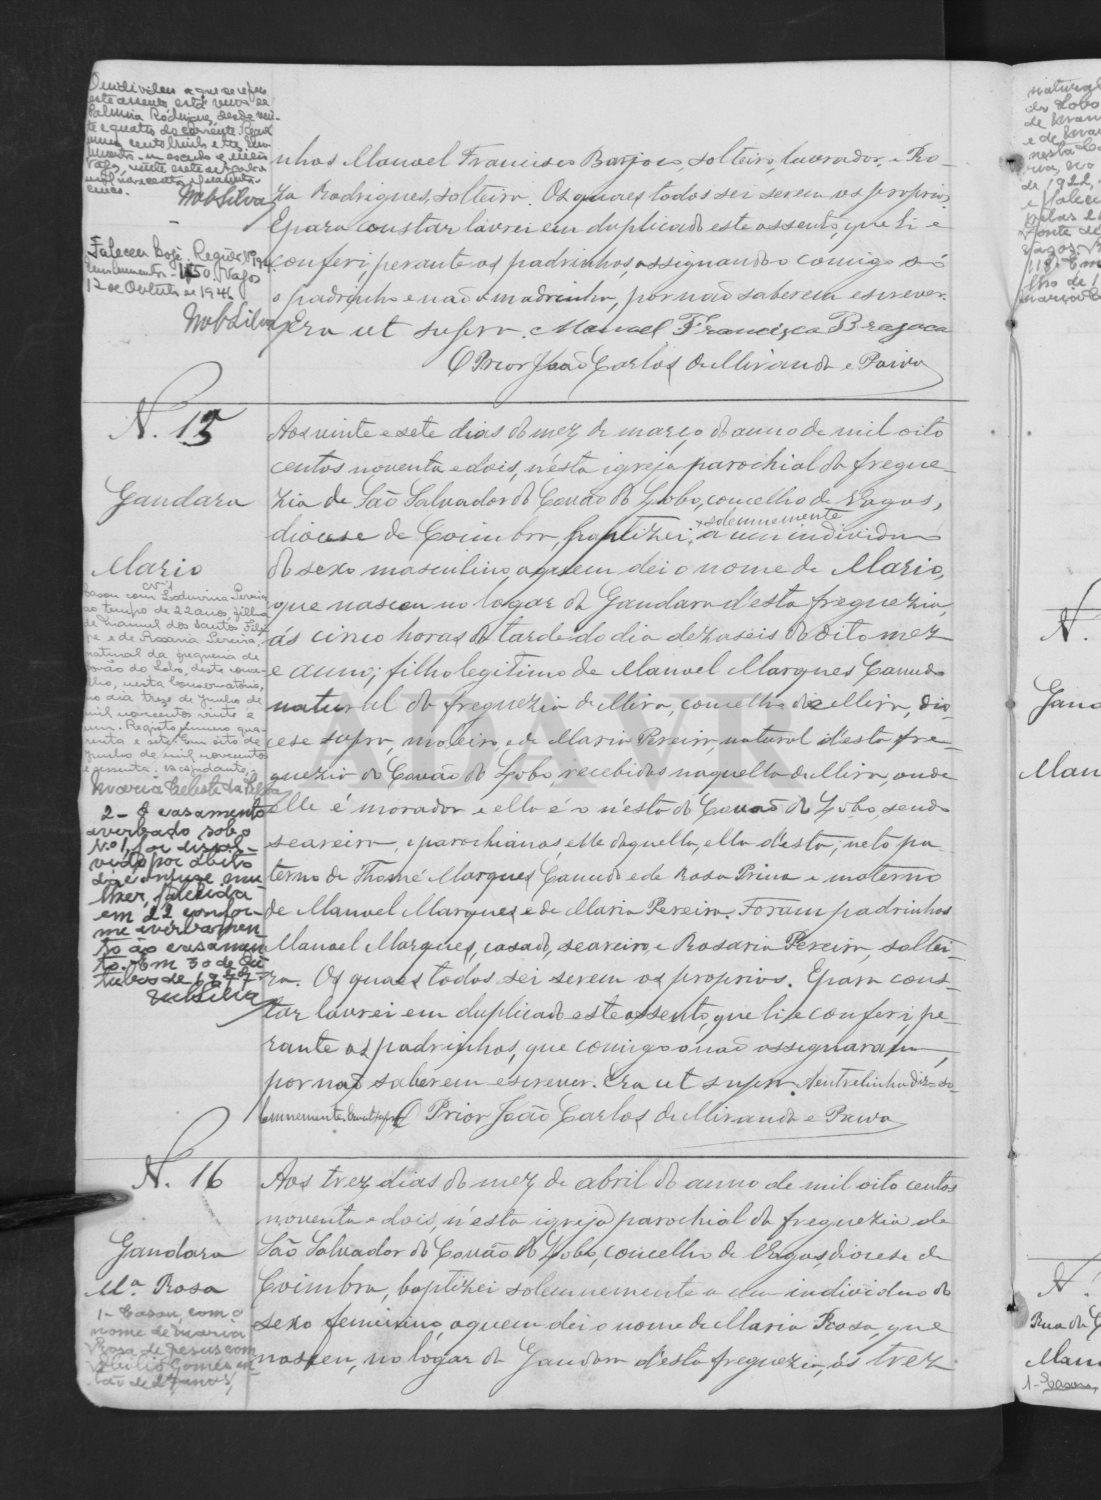 O individuo a que se refere
este assento está viuvo de
Palmira Rodrigues, desde vin-
te e quatro do corrente
Vagos, vinte e sete
mil novecentos e quarenta
MobSilva
Faleceu hoje. Registo Nº 194.
Emolumentos - 1$50. Vagos
12 de Outubro de 194
MobSilva
nhos Manoel Francisco Barjoco, solteiro, lavrador, e Ro-
za Rodrigues, solteira. Os quaes todos sei serem os proprios.
E para constar lavrei em duplicado este assento, que li e
conferi perante os padrinhos, assignando comigo só
o padrinho e não a madrinha, por não saberem escrever.
Era ut supra. Manuel Francisco Bragaca
O Prior João Carlos de Miranda e Paiva
N. 15
Gandara
Mario
Nº 1
Casou com Ludovina Pereira
ao tempo de 22 anos, filha
de Manuel dos Santos Feli-
pe e de Rosaria Pereira,
natural da freguesia de
Covão do Lobo, deste conce-
lho, nesta Conservatória,
no dia treze de Junho de
mil novecentos vinte e
um. Registo numero qua-
renta e sete. Em oito de
Junho de mil novecentos
e sessenta. A ajudante,
Maria Celeste da Silva
2 - O casamento
averbado sob o
Nº 1, foi dissol-
vido por óbito
do conjuge mu-
lher, falecida
em 22 confor-
me averbamen-
to ao casamen-
to. Em 30 de Ou-
tubro de 19
Aos vinte e sete dias do mez de março do anno de mil oito
centos noventa e dois, n'esta igreja parochial da fregue-
zia de São Salvador do Covão do Lobo, concelho de Vagos,
diocese de Coimbra, baptizei solemnemente a um individuo
do sexo masculino, a quem dei o nome de Mario,
que nasceu no logar da Gandara d'esta freguezia,
ás cinco horas da tarde do dia dezaseis do dito mez
e anno; filho legitimo de Manoel Marques Camudo
natural da freguezia de Mira, concelho de Mira, dio-
cese supra, moleiro, e de Maria Pereira, natural d'esta fre-
guezia do Covão do Lobo recebidos naquella de Mira, onde
elle é morador e ella é o n'esta do Covão do Lobo, sendo
seareira, e parochianos, elle daquella, ella d'esta; neto pa-
terno de Thomé Marques Camudo e de Rosa Prina e materno
de Manoel Marques e de Maria Pereira. Foram padrinhos
Manoel Marques, casado, seareiro, e Rosaria Pereira, soltei-
ra. Os quaes todos sei serem os proprios. E para cons-
tar lavrei em duplicado este assento, que li e conferi pe-
rante os padrinhos, que comigo não assignaram,
por não saberem escrever. Era ut supra. A entrelinha diz = so-
lemnemente. Era ut supra. O Prior João Carlos de Miranda e Paiva
N. 16
Gandara
Mª. Rosa
1 - Casou, com o
nome de Maria
Rosa de Jesus com
Julio Gomes en-
tão de 27 anos,
Aos trez dias do mez de abril do anno de mil oito centos
noventa e dois, n'esta igreja parochial da freguezia de
São Salvador do Covão do Lobo, concelho de Vagos, diocese de
Coimbra, baptizei solemnemente a um individuo do
sexo feminino, a quem dei o nome de Maria Rosa, que
nasceu, no logar da Gandara d'esta freguezia, ás trez
ADAVR
natural
do Lobo
de 1922,
e falec
Vagos
N.
Gand
Man
N.
Rua da
Man
1 - Casou,